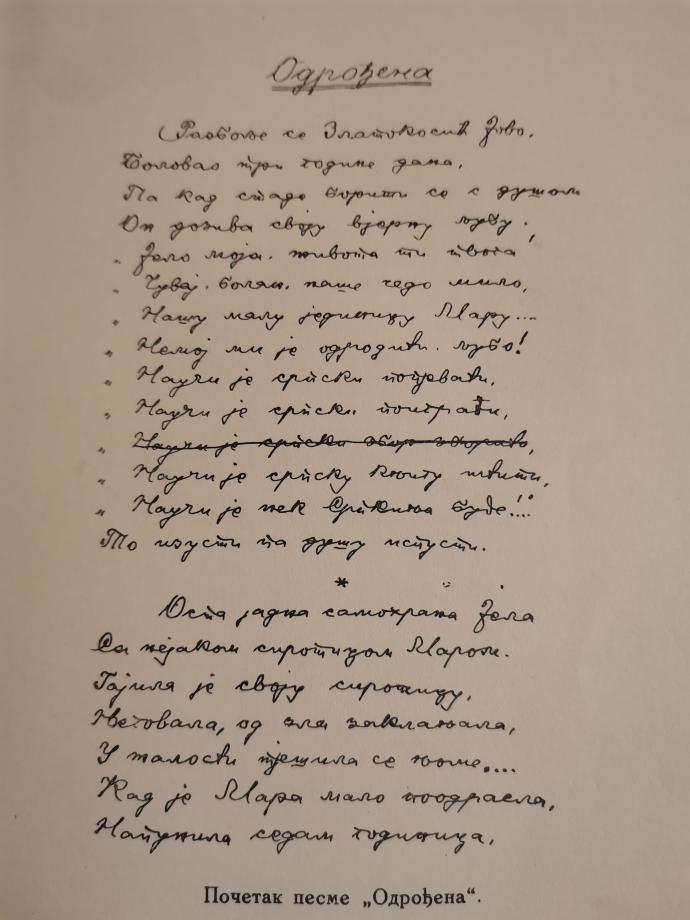 Одрођена
Разбоље се Златокосић Јово,
Боловао три године дана,
Па кад стаде борити се с душом
Он дозива своју вјерну љубу.
„ Јело моја, живота ти твога,
„ Чувај, болан, наше чедо мило,
„ Нашу малу јединицу Мару...
„ Немој ми је одродити, љубо!
„ Научи је српски попјевати,
„ Научи је српски поиграти,
„ Научи је српски збор
„ Научи је српску књигу штити,
„ Научи је нек Српкиња буде!..."
То изусти па душу испусти.
*
Оста јадна самохрана Јела
Са нејаком сиротицом Маром.
Гајила је своју сиротицу,
Његовала, од зла заклањала,
У жалости тјешила се њоме....
Кад је Мара мало поодрасла,
Напунила седам годиница,
Почетак песме „Одрођена“.